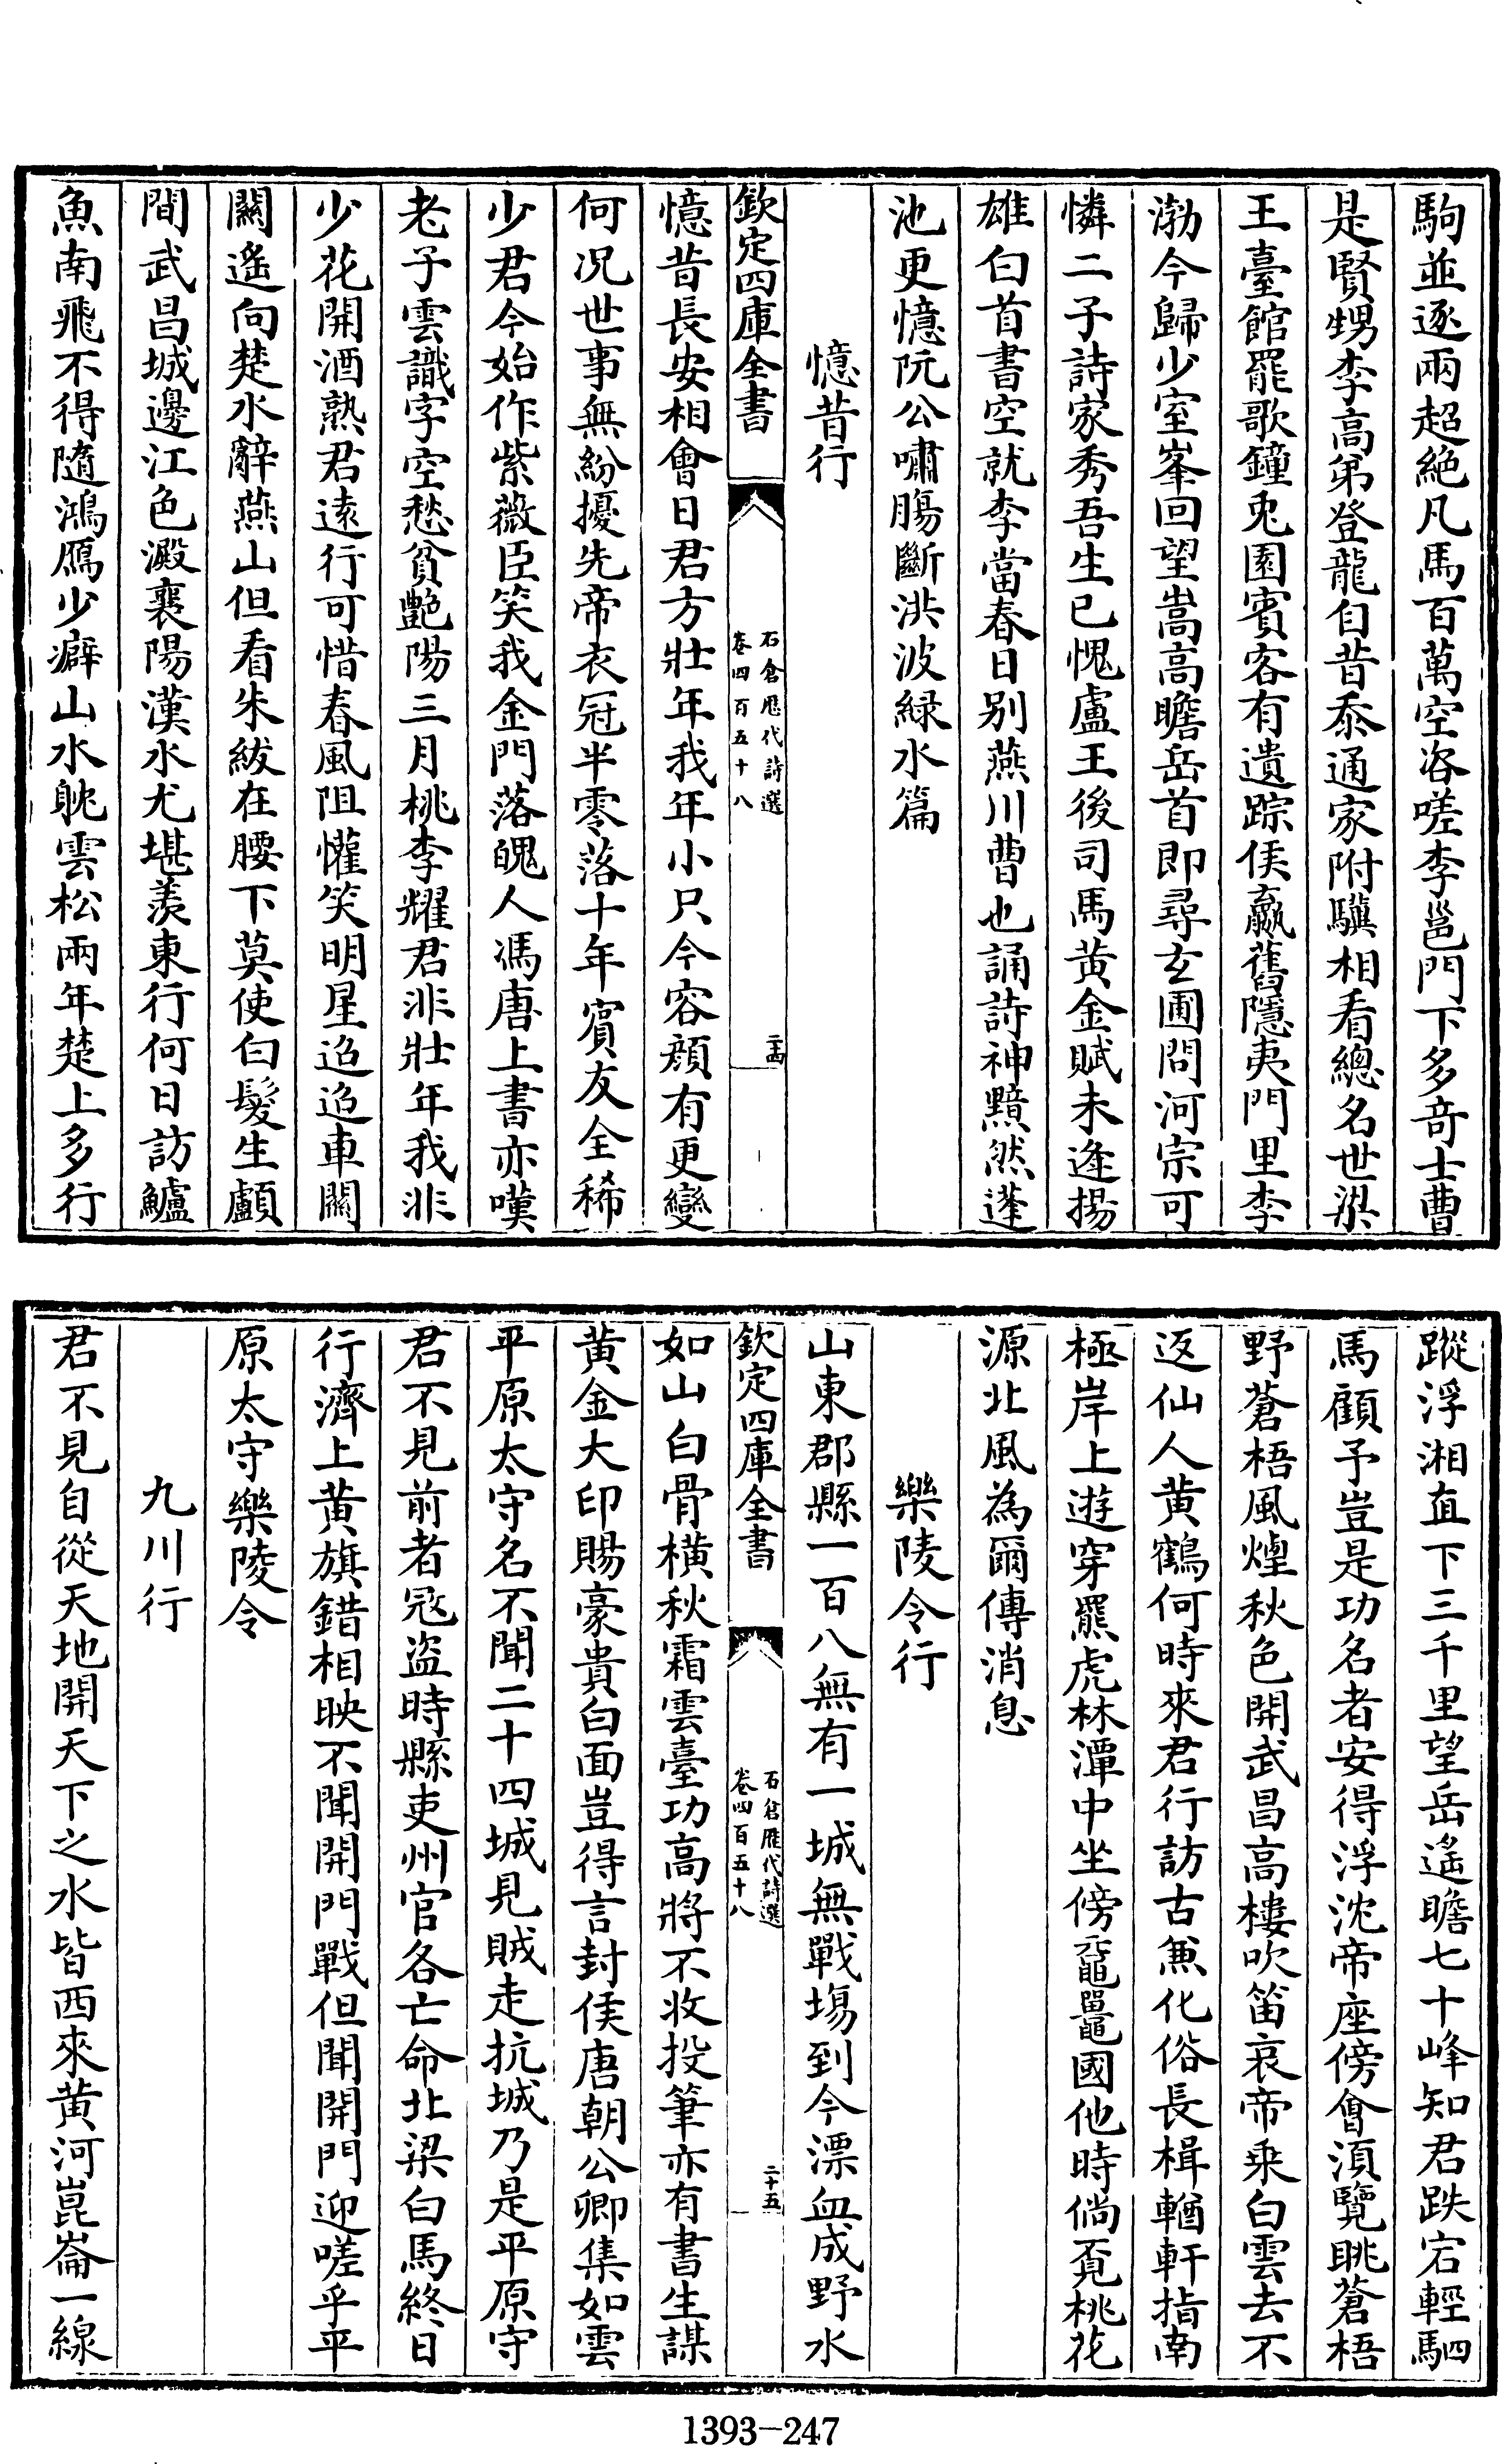 駒並逐兩超絶凡馬百萬空咨嗟李邕門下多奇士曹
是賢甥李高弟登龍自昔忝通家附驥相看總名世梁
王臺館罷歌鐘兎園賓客有遺踪侯嬴舊隱夷門里李
渤今歸少室峯回望嵩高瞻岳首即尋玄圃問河宗可
憐二子詩家秀吾生已愧盧王後司馬黄金賦未逢揚
雄白首書空就李當春日别燕川曹也誦詩神黯然蓬
池更憶阮公嘯腸斷洪波緑水篇
憶昔行
欽定四庫全書
石倉歴代詩選
卷四百五十八
二十四
憶昔長安相會日君方壯年我年小只今容顔有更變
何况世事無紛擾先帝衣冠半零落十年賓友全稀
少君今始作紫薇臣笑我金門落魄人馮唐上書亦嘆
老子雲識字空愁貧艶陽三月桃李耀君非壯年我非
少花開酒熟君遠行可惜春風阻懽笑明星迢迢車關
關遙向楚水辭燕山但看朱紱在腰下莫使白髮生顱
間武昌城邊江色澱襄陽漢水尤堪羨東行何日訪鱸
魚南飛不得隨鴻鴈少癖山水躭雲松兩年楚上多行
蹤浮湘直下三千里望岳遙瞻七十峰知君跌宕輕駟
馬顧予豈是功名者安得浮沈帝座傍會湏覽眺蒼梧
野蒼梧風煙秋色開武昌高樓吹笛哀帝乘白雲去不
返仙人黄鶴何時來君行訪古兼化俗長楫輶軒指南
極岸上遊穿羆虎林潭中坐傍黿鼉國他時倘覓桃花
源北風為爾傳消息
樂陵令行
山東郡縣一百八無有一城無戰塲到今漂血成野水
欽定四庫全書
石倉歴代詩選
卷四百五十八
二十五
如山白骨橫秋霜雲臺功高將不收投筆亦有書生謀
黄金大印賜豪貴白面豈得言封侯唐朝公卿集如雲
平原太守名不聞二十四城見賊走抗城乃是平原守
君不見前者冦盗時縣吏州官各亡命北梁白馬終日
行濟上黄旗錯相映不聞開門戰但聞開門迎嗟乎平
原太守樂陵令
九川行
君不見自從天地開天下之水皆西來黄河崑崙一線
1393-247